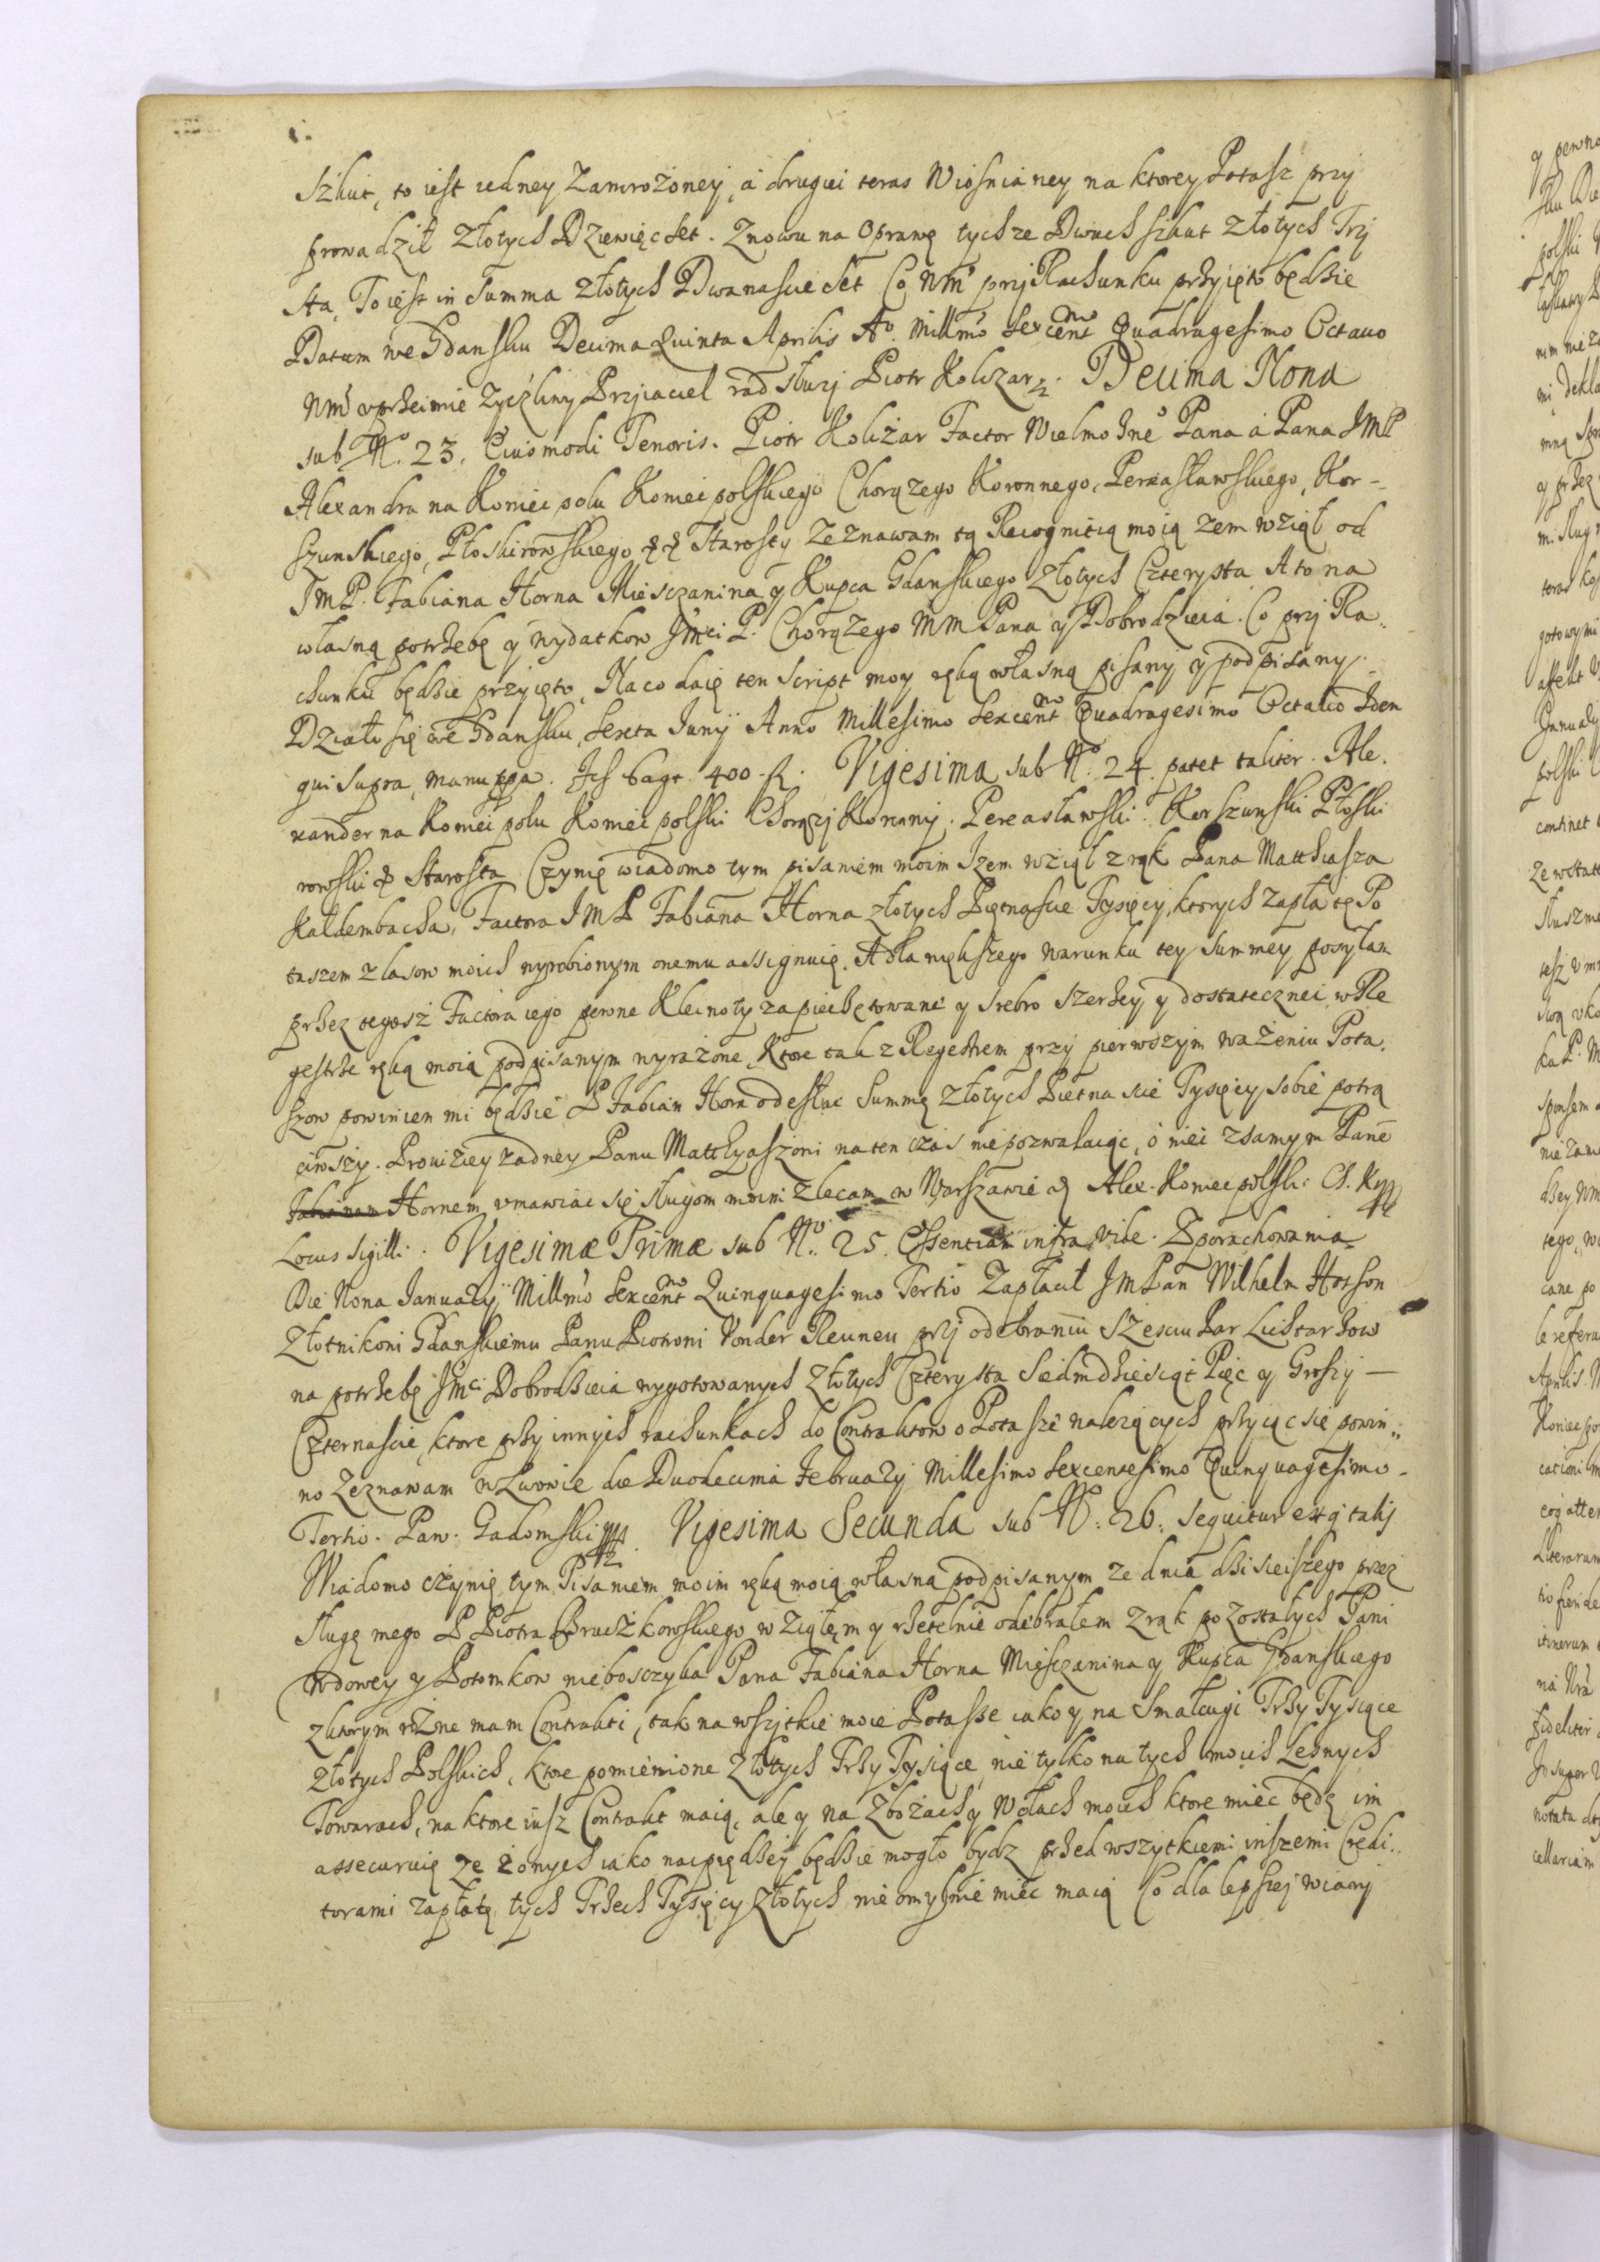 szkut, to iest iedney Zamrożoney, a drugiei teras Wiosnianey na ktorey Potasz przy
prowadził złotych Dziewięcset. Znowu na Oprawę tychze Dwuch szkut złotych Trzy
sta, To iest in Summa złotych Dwanascie Set Co Wmć przy Rachunku przyięto będzie
Datum we Gdansku Decima Quinta Aprilis Ao. Millmo Sexcentmo Quadragesimo Octauo
Wmć uprzeimie Zyczliwy Przyiaciel rad służy Piotr Kolczar. Decima Nona
sub No. 23. Eiusmodi Tenoris. Piotr Koliżar Factor Wielmożne Pana a Pana JMP
Alexandra na Koniecpolu Koniecpolskiego Chorązego Koronnego, Pereasławskiego, Kor-
szunskiego, Płoskirowskiego && Starosty Zeznawam tą Recognitią moią zem wziął od
JmP. Fabiana Horna Miesczanina y Kupca Gdanskiego Złotych Czterysta A to na
własną potrzebę y wydatkow Jmci P. Chorązego MM Pana y Dobrodzieia. Co przy Ra-
chunku będzie przyięto, Na co daię ten Script moy ręką własną pisany y podpisany.
Działo się we Gdansku, Sexta Juny Anno Millesimo Sexcentmo Quadragesimo Octauo Idem
qui supra, manu ppa. 400. fl. Vigesima sub No. 24. patet taliter. Ale-
xander na Koniecpolu Koniecpolski Chorązy Koronny. Pereasławski. Korszunski Płoski
rowski & Starosta Czynię wiadomo tym pisaniem moim Izem wziął z rąk Pana Matthiasza
Kaldembacha, Factora JMP Fabiana Horna złotych Piętnascie Tysięcy, ktorych zapłatę Po
taszem z lasow moich wyrobionym onemu assignuię. A dla większego warunku tey Summey posyłam
przez tegosz Factora iego pewne Kleinoty zapieczętowane y srebro szerzey y dostatecznei w Re
gestrze ręką moią podpisanym wyrażone, Ktore tak z Regestrem przy pierwszym ważeniu Pota-
szow powinien mi będzie P Fabian Horn odesłac Summę złotych Pietnascie Tysięcy sobie potrą
ciwszy. Prouiziey zadney Panu Matthyaszowi na ten czas niepozwalaiąc, o niei z samym Pane
Fabianem Hornem umawiac się sługom moim zlecam w Warszawie Alex. Koniecpolski Ch. K
Locus sigilli. Vigesimæ Primæ sub No. 25. Essentiam infra vide. Zporachowania
Die Nona January Millmo Sexcentmo Quinquagesimo Tertio Zapłacił JmPan Wilhelm
Złotnikowi Gdanskiemu Panu Piotrowi Vonder Renneu przy odebraniu Szesciu Par Lichtarzow
na potrzebę Jmci Dobrodzieia wygotowanych złotych Czterysta Siedmdziesiąt Pięc y Groszy —
Czternascie, ktore przy innych rachunkach do Contraktow o Potasze nalezących przyiąc sie powin-
no Zeznawam w Lwowie die Duodecima February Millesimo Sexcentesimo Quinquagesimo
Tertio. Paw. Gadomski Vigesima Secunda sub No. 26. sequitur estq talis
Wiadomo czynię tym Pisaniem moim ręką moią własną podpisanym ze dnia dzisieiszego przez
sługę mego P Piotra Bruszkowskiego wziąłem y rzetelnie odebrałem z rąk pozostałych Pani
Wdowey y Potomkow nieboszczyka Pana Fabiana Horna Miesczanina y Kupca Gdanskiego
z ktorym rżne mam Contrakti, tak na wszytkie moie Potasze iako y na Smalcugi Trzy Tysiące
złotych Polskich, ktore pomienione złotych Trzy Tysiące, nie tylko na tych moich Lesnych
Towarach, na ktore iusz Contrakt maią, ale y na Zbożach y Wołach moich ktore miec będę im
assecuruię ze z onych iako nayprędzey będzie mogło bydz przed wszytkiemi inszemi Credi-
torami zapłatę tych Trzech Tysięcy złotych nieomylnie miec maią Co dla lepszey wiary